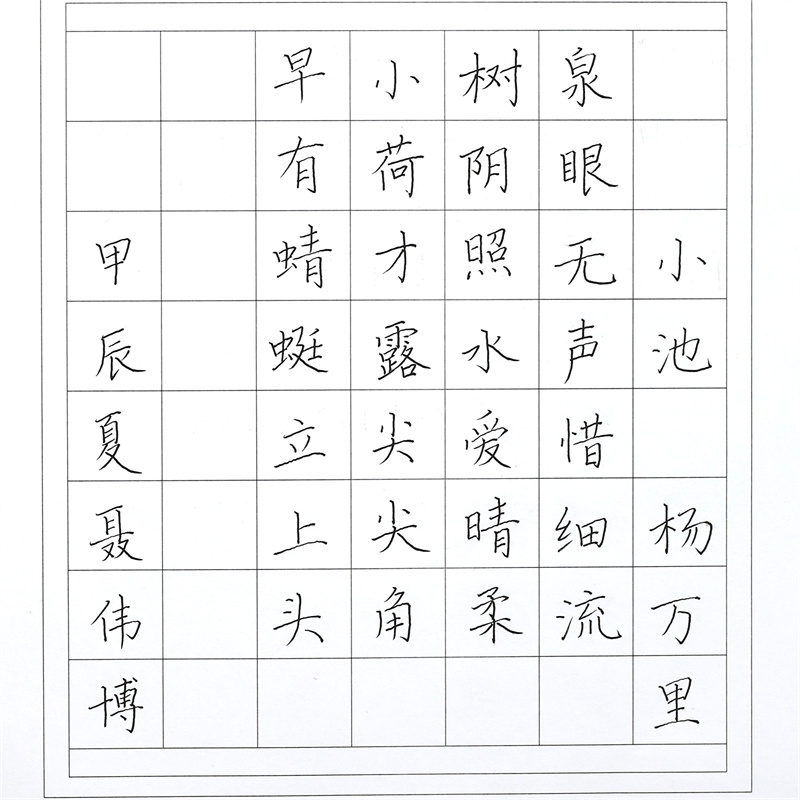 小池 杨万里
泉眼无声惜细流
树阴照水爱晴柔
小荷才露尖尖角
早有蜻蜓立上头
甲辰夏聂伟博